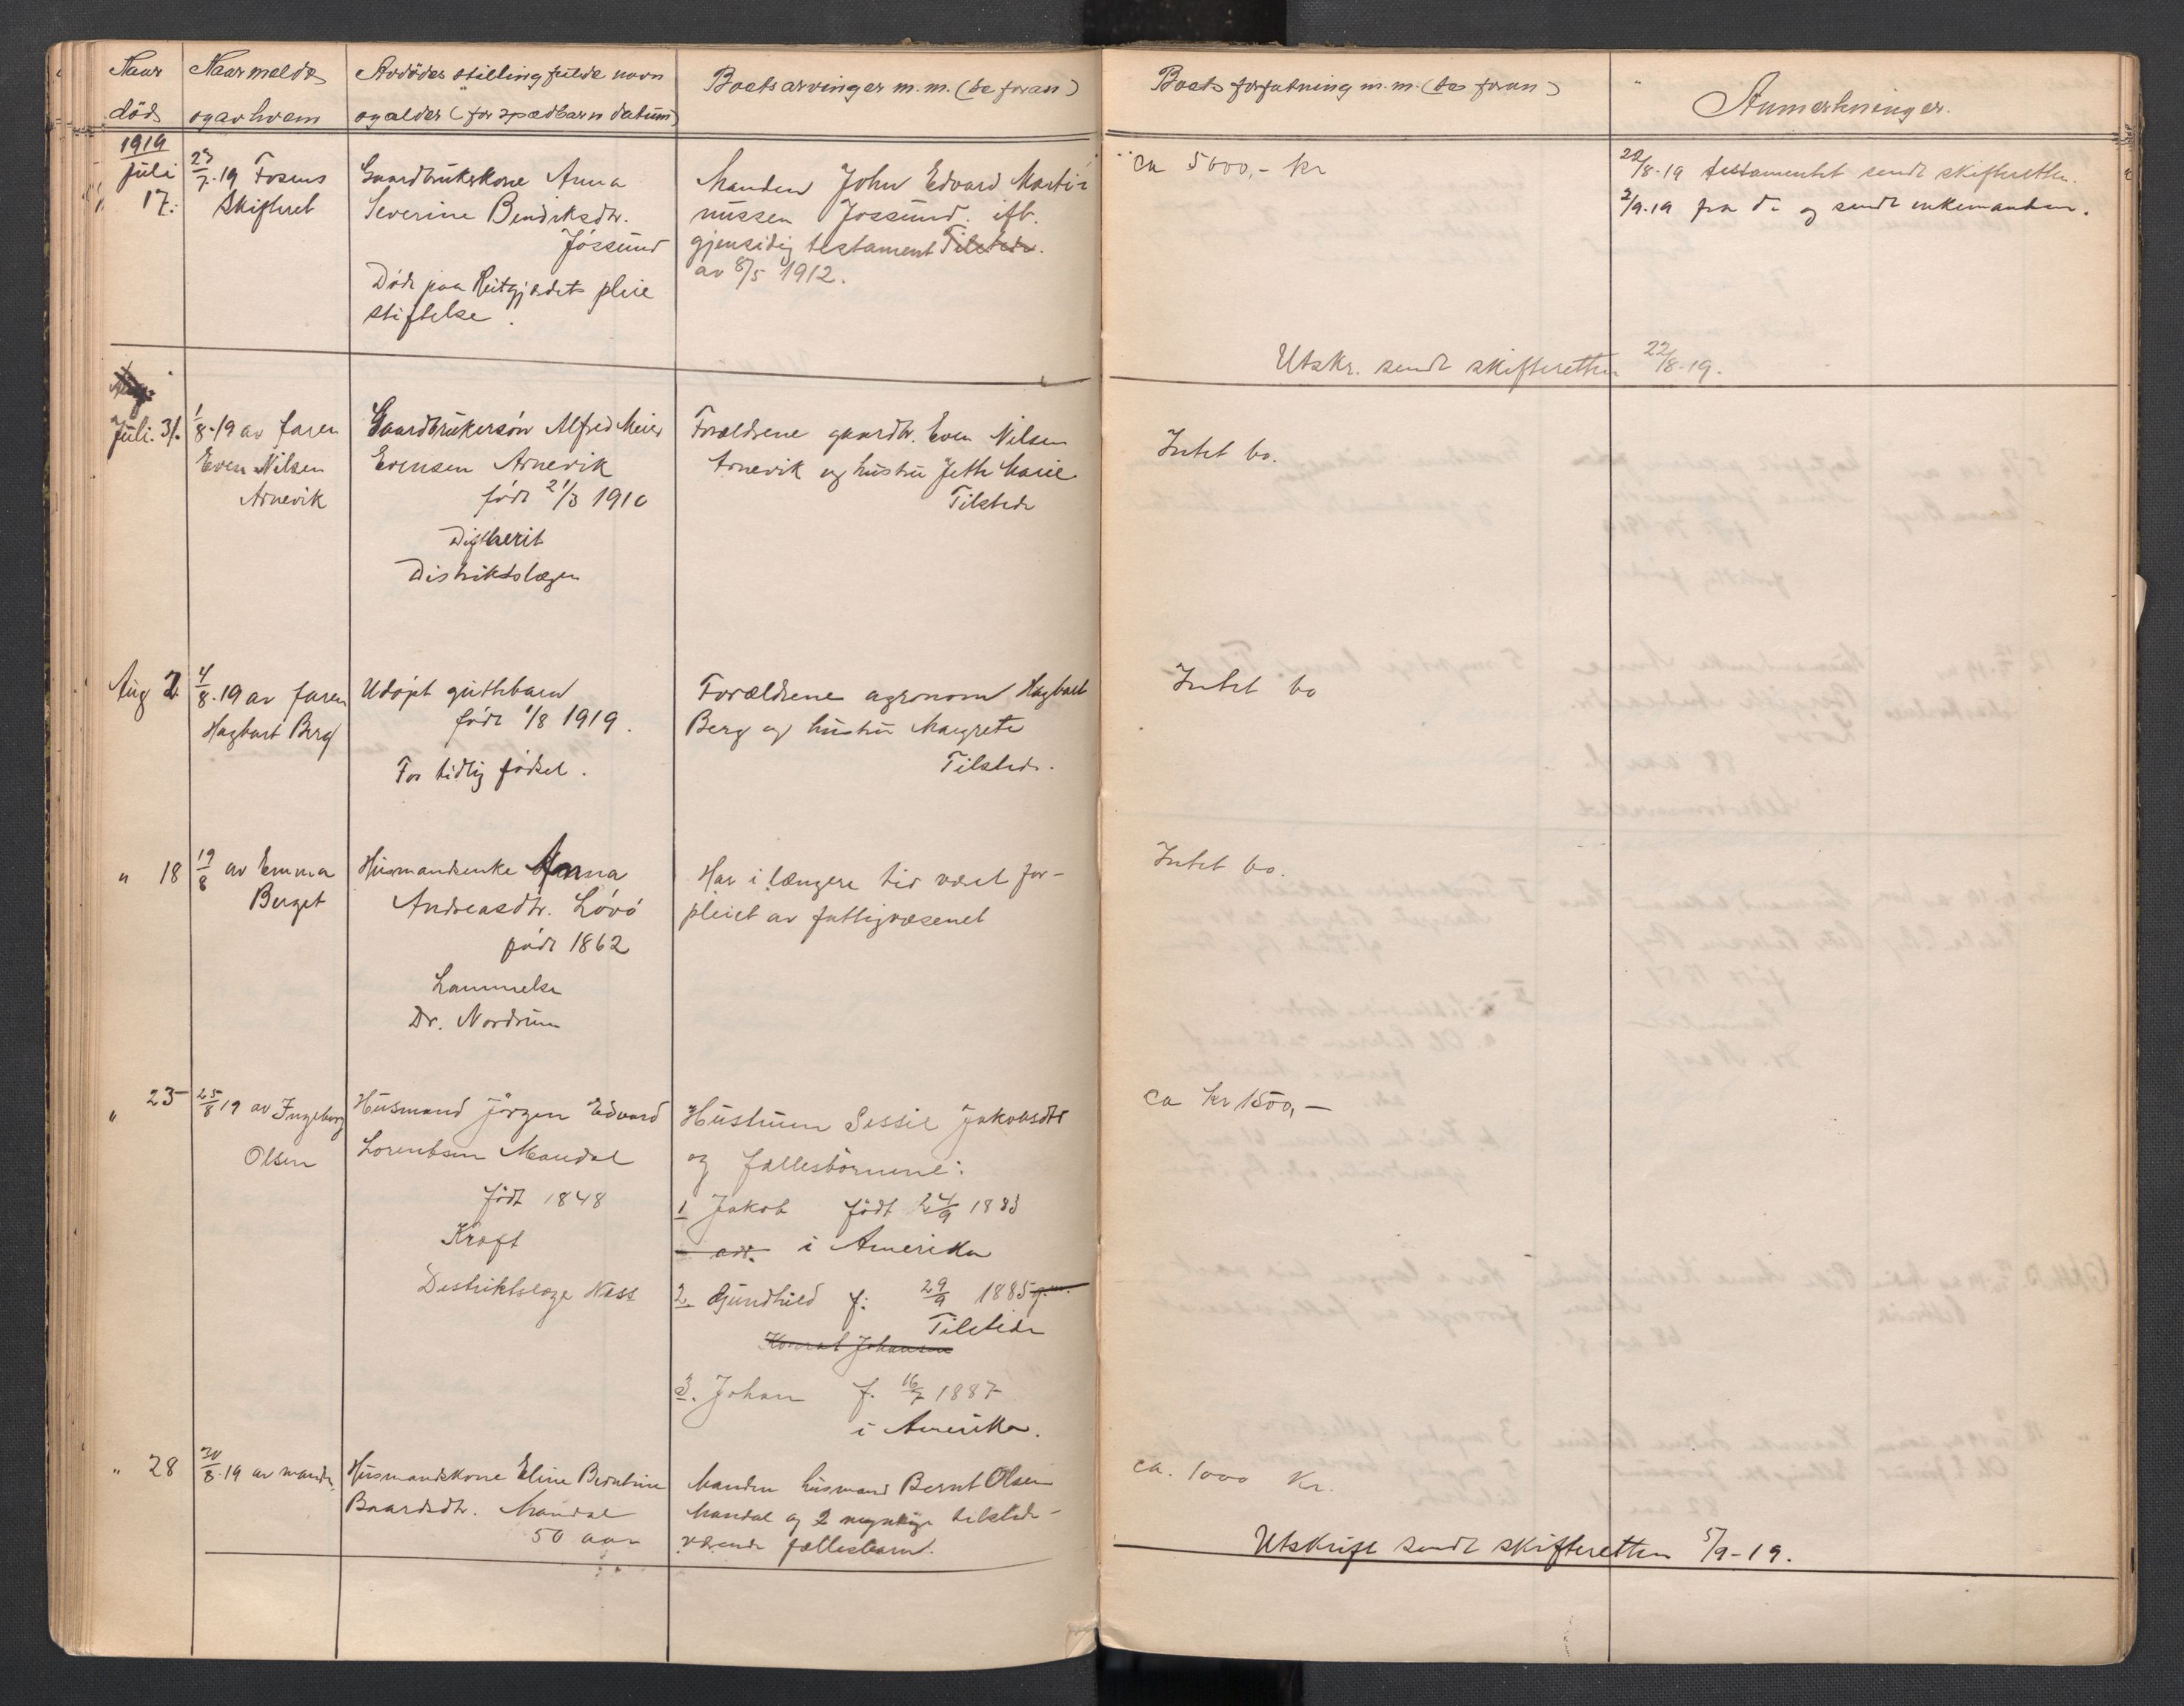 Naar
död
Naar meldt
og av hvem
Avdödes stilling fulde navn
og alder (for spædbarn datum)
Boets arvinger m.m. (se foran)
Boets forfatning m.m. (se foran)
Anmerkninger.
1919
juli
17.
23/7.19 Fosens
Skifteret
Gaardbrukskone Anna
Severine Bendiksdtr.
Jössund
Död paa Reitgjerdets pleie
stiftelse.
Manden John Edvard Marti-
nussen Jossund. iflg.
gjensidig testament Tilstede.
av 8/5 1912.
ca 5000,- kr
22/8-19 testamentet sendt skifteretten.
2/9.19 fra do og sendt enkemanden.
Utskr. sendt skifteretten 22/8-19.
Juli. 31.
1/8-19 av faren
Even Nilsen
Arnevik
Gaardbrukersön Alfred Meier
Evensen Arnevik
född 21/3 1910
Difterit
Distriktslægen
Forældrene gaardbr. Even Nilsen
Arnevik og hustru Jette Marie
Tilstede
Intet bo.
Aug 2
4/8.19 av faren
Hagbart Berg
Udöpt guttebarn
född 1/8 1919.
For tidlig födsel.
Forældrene agronom Hagbart
Berg og hustru Margrete
Tilstede.
Intet bo
" 18
19/8 av Emma
Berget
Husmandsenke Anna
Andreasdtr. Lövö
född 1862
Lammelse
Dr. Nordrum
Har i længere tid været for-
pleiet av fattigvæsenet
Intet bo.
" 25
25/8 19 av Ingeborg
Olsen
Husmand Jörgen Edvard
Lorentsen Mandal
Född 1848
Kræft
Distriktslæge Næss
Hustruen Sessie Jakobsdtr
og fællesbörnene:
1 Jakob född 24/9 1883
adr. i Amerika
2 Gundhild f: 29/9 1885 g.m.
Tilstede
Konrat Johansen
3. Johan f. 16/7 1887
i Amerika.
ca kr 1500,-
" 28
30/8.19 av manden
Husmandskone Eline Berntine
Baardsdtr. Mandal
50 aar
Manden husmand Bernt Olsen
Mandal og 2 myndige tilstede-
værende fællesbarn.
ca. 1000 Kr.
Utskrift sendt skifteretten 5/9-19.